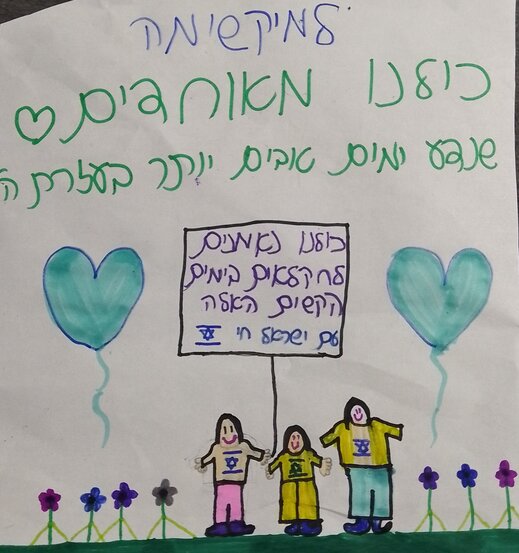 למיקשימה
כולנו מאוחדים
שנדע ימים טובים יותר בעזרת ה'
כולנו נאמנים
לחקלאים בימים
הקשים האלה
עם ישראל חי